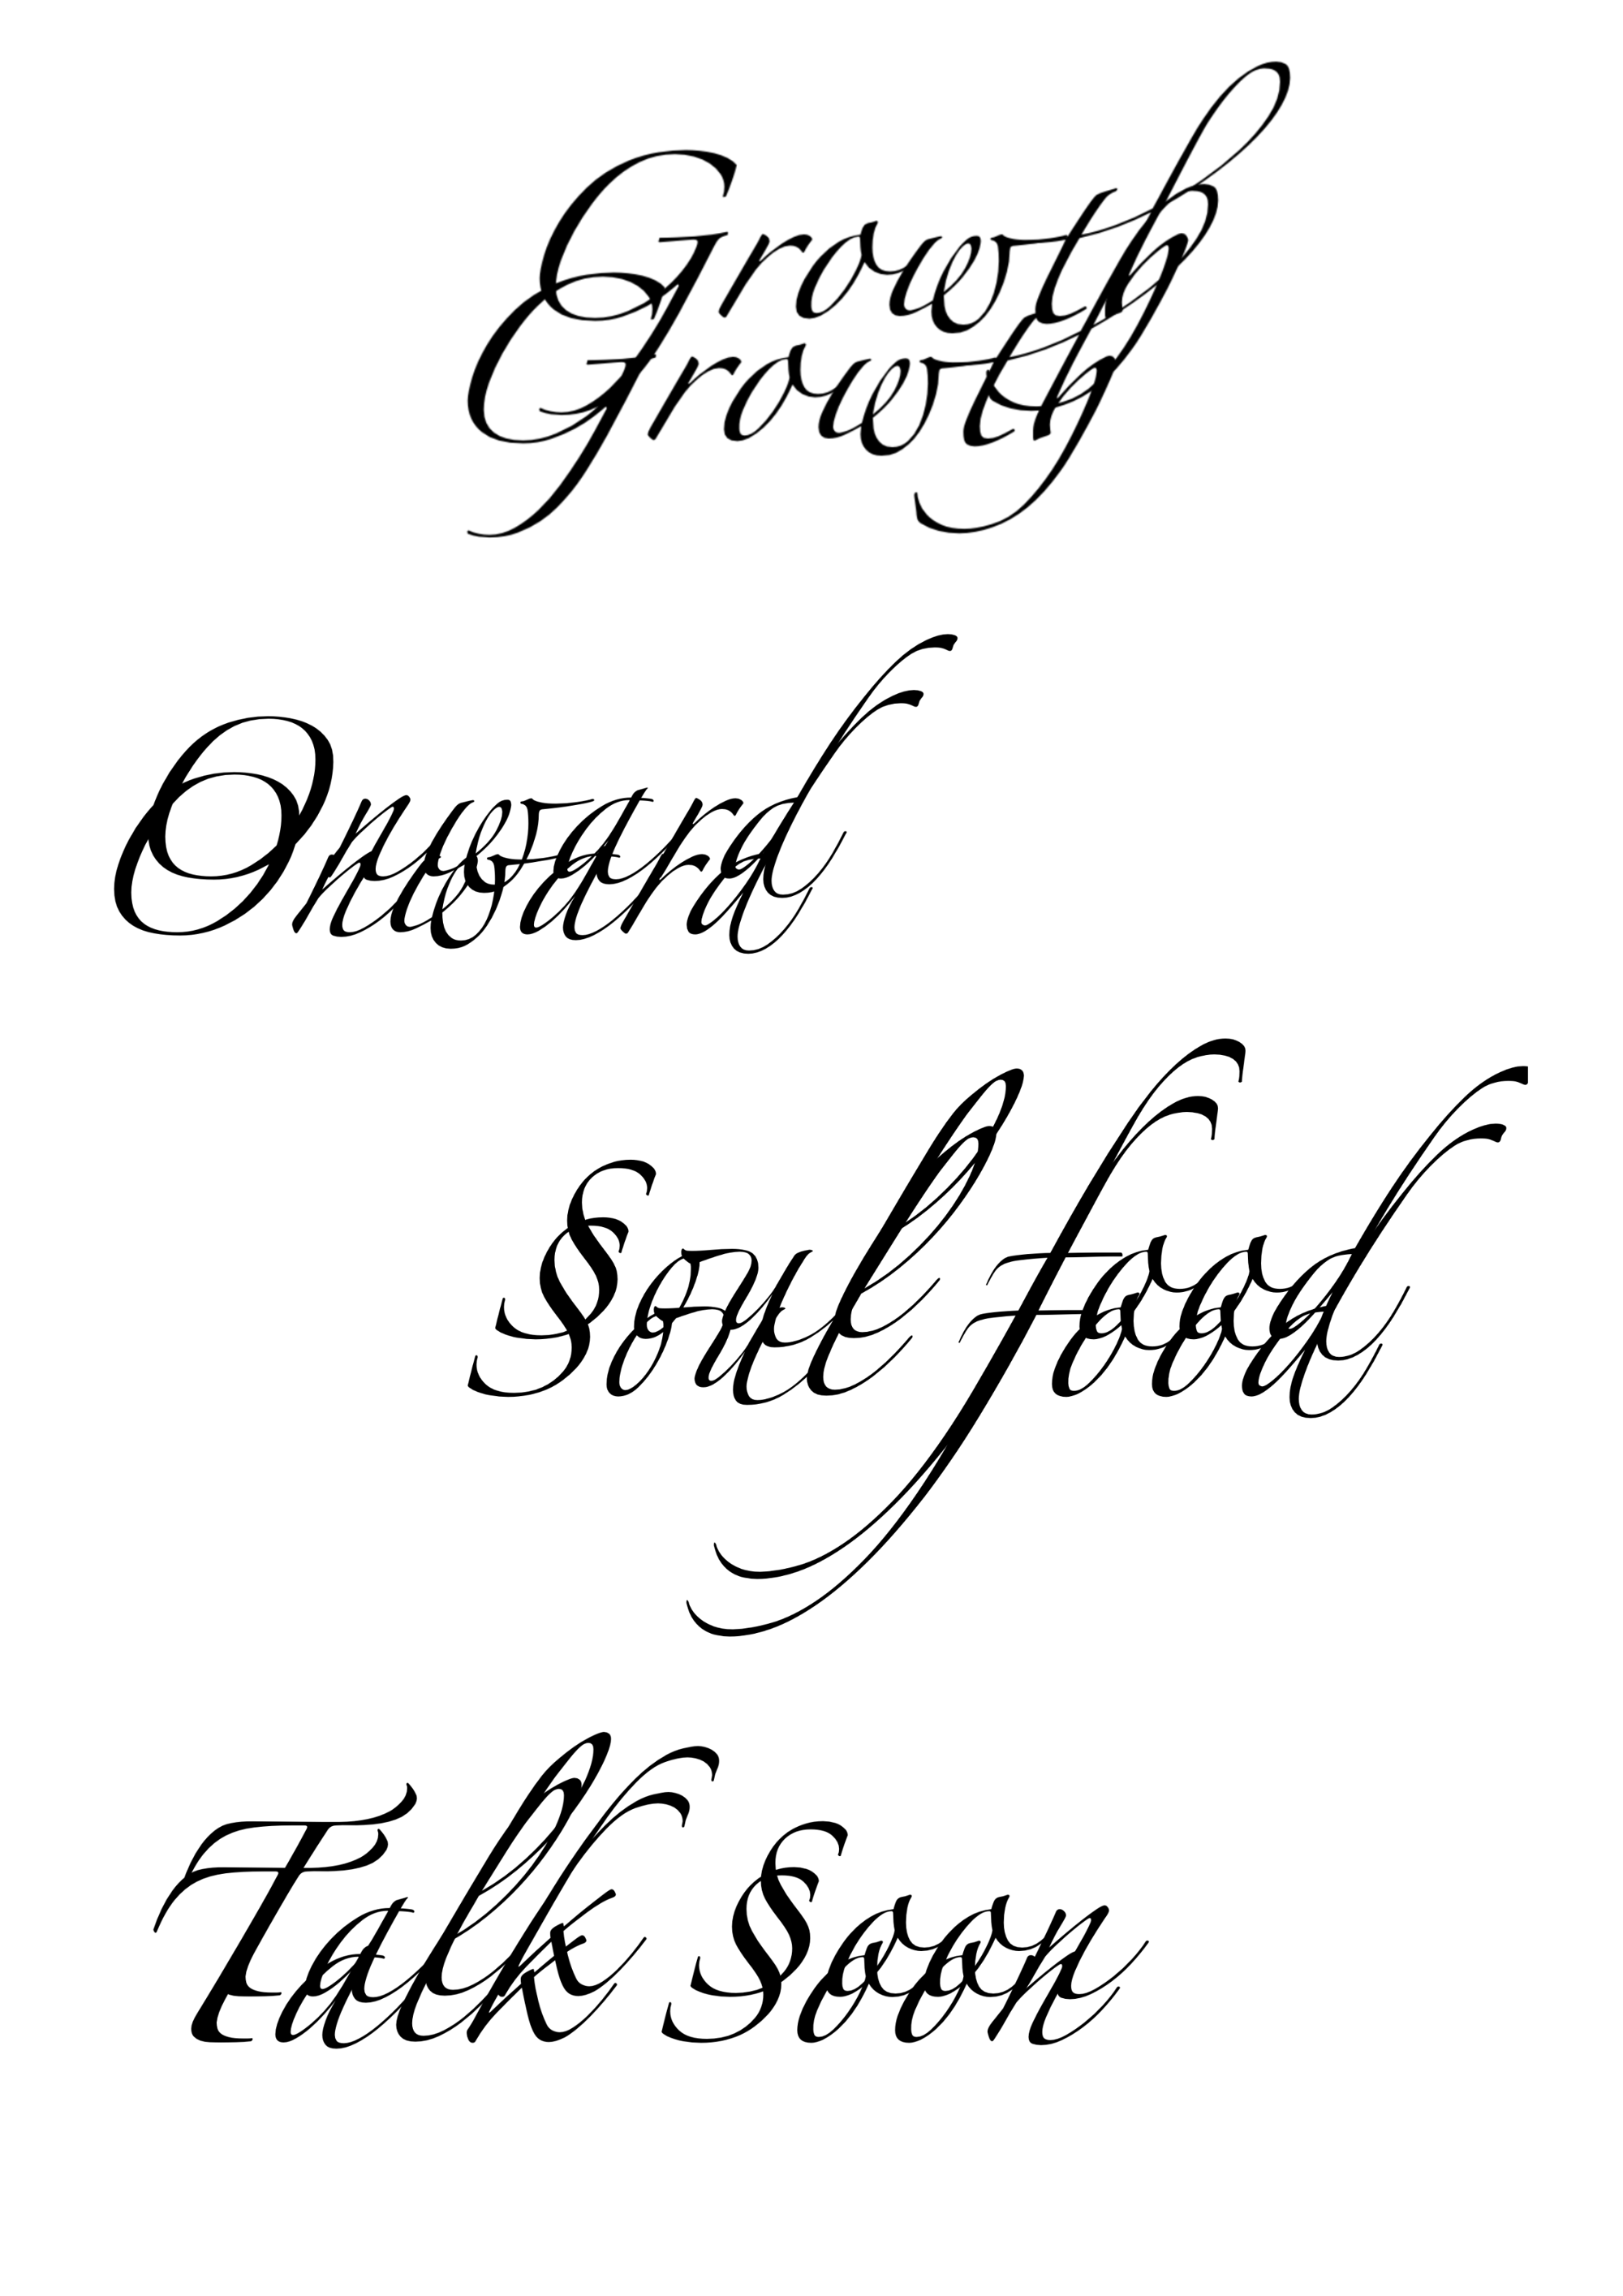 Growth
Growth
Onward
Onward
Soul food
Soul food
Talk Soon
Talk Soon